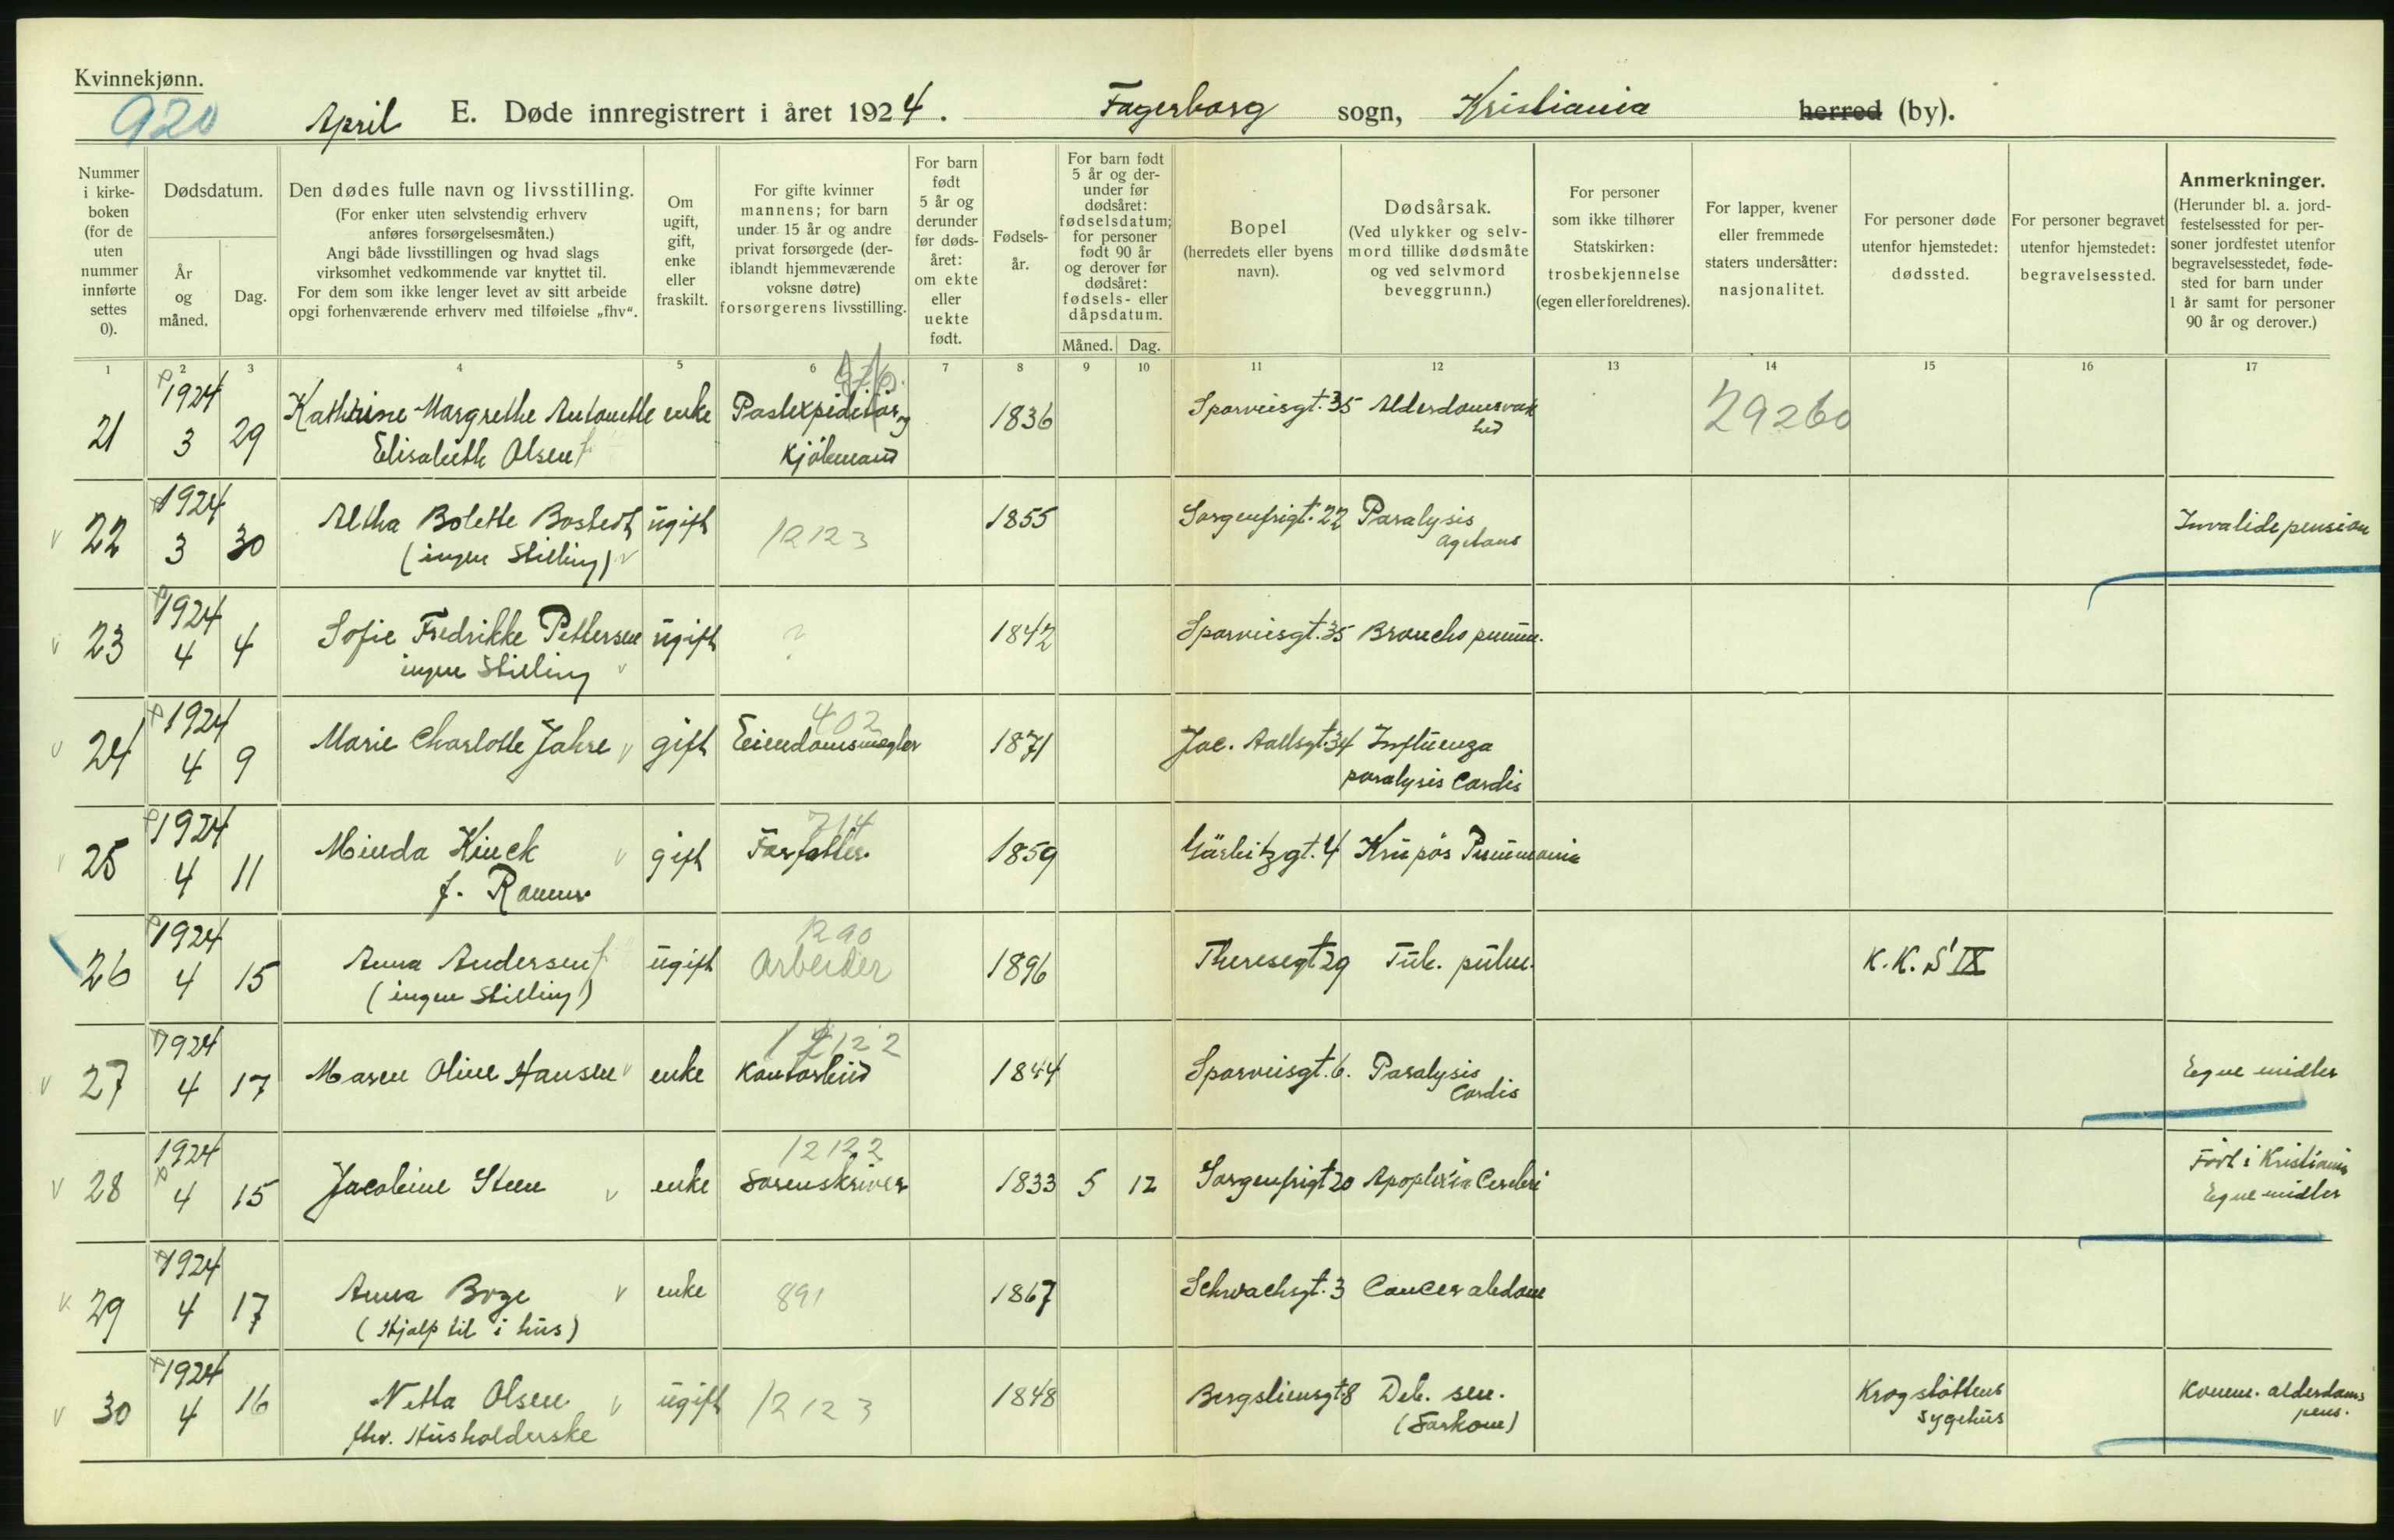 Kvinnekjønn.
920
April E. Døde innregistrert i året 1924. Fagerborg sogn, Kristiania herred (by).
Nummer
i kirke-
boken
(for de
uten
nummer
innførte
settes
0).
Dødsdatum.
År
og
måned.
Dag.
Den dødes fulle navn og livsstilling.
(For enker uten selvstendig erhverv
anføres forsørgelsesmåten.)
Angi både livsstillingen og hvad slags
virksomhet vedkommende var knyttet til.
For dem som ikke lenger levet av sitt arbeide
opgi forhenværende erhverv med tilføielse „fhv“.
Om
ugift,
gift,
enke
eller
fraskilt.
For gifte kvinner
mannens; for barn
under 15 år og andre
privat forsørgede (der-
iblandt hjemmeværende
voksne døtre)
forsørgerens livsstilling.
For barn
født
5 år og
derunder
før døds-
året:
om ekte
eller
uekte
født.
Fødsels-
år.
For barn født
5 år og der-
under før
dødsåret:
fødselsdatum;
for personer
født 90 år
og derover før
dødsåret:
fødsels- eller
dåpsdatum.
Måned. Dag.
Bopel
(herredets eller byens
navn).
Dødsårsak.
(Ved ulykker og selv-
mord tillike dødsmåte
og ved selvmord
beveggrunn.)
For personer
som ikke tilhører
Statskirken:
trosbekjennelse
(egen eller foreldrenes).
For lapper, kvener
eller fremmede
staters undersåtter:
nasjonalitet.
For personer døde
utenfor hjemstedet:
dødssted.
For personer begravet
utenfor hjemstedet:
begravelsessted.
Anmerkninger.
(Herunder bl. a. jord-
festelsessted for per-
soner jordfestet utenfor
begravelsesstedet, føde-
sted for barn under
1 år samt for personer
90 år og derover.)
1 2 3 4 5 6 7 8 9 10 11 12 13 14 15 16 17
1924
21 3 29 Kathrine Margrethe Antonette enke Postexpeditør og 1836 Sporveisgt. 35 Alderdomsvak
hed
Elisabeth Olsen Kjøbmand
29260
1924
22 3 30 Altha Bolette Bostedt ugift 12123 1855 Sorgenfrigt. 22 Paralysis
agitans
(ingen Stilling) Invalidepension
1924
23 4 4 Sofie Fredrikke Pettersen ugift ? 1842 Sporveisgt. 35 Broncho pneum.
ingen Stilling
1924 402
24 4 9 Marie Charlotte Jahre gift Eiendomsmegler 1871 Jac. Aallsgt. 34 Influenza
paralysis Cordis
1924 714
25 4 11 Minda Kinck gift Forfatter 1859 Gørbitzgt. 4 Krupøs Pneumonia
f. Ramm
1924 1290
26 4 15 Anna Andersen ugift Arbeider 1896 Theresegt 29 Tub. pulm. K. K. S' IX
(ingen Stilling)
1924 12122
27 4 17 Maren Oline Hansen enke Kontorbud 1844 Sporveisgt. 6. Paralysis
Cordis
Egne midler
1924 12122
28 4 15 Jacobine Steen enke Sorenskriver 1833 5 12 Sorgenfrigt 20 Apoplexia Cerebri
Født i Kristiania
Egne midler
1924
29 4 17 Anna Boge enke 891 1867 Schwachsgt. 3 Cancer abdom
(Hjalp til i hus)
1924
30 4 16 Netta Olsen ugift 12123 1848 Bergsliensgt. 8 Deb. sen.
(Sarkom)
fhv. Husholderske
Krogstøttens
sygehus
Komm. alderdoms
pens.